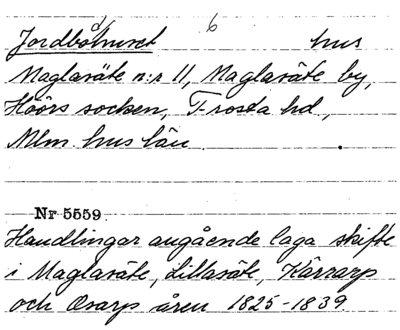 Jordbohuset 6 hus
Maglasäte n:r 11, Maglasäte by,
Höörs socken, Frosta hd,
Mlm. hus län.
Nr 5559.
Handlingar angående laga skifte
i Maglasäte, Lillasäte, Kärrarp
och Osarp åren 1825-1839.